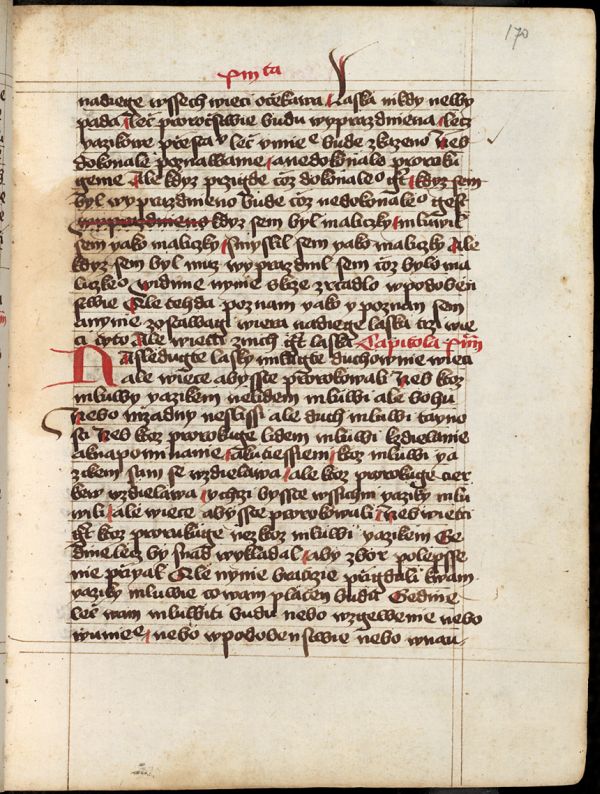 170
nadiege wssech wieci oczekawa Laska nikdy newy
pada Lecz proroczstwie budu wyprazdniena lecz
yazikowe przesta lecz umie bude zkazeno Neb
dokonale poznawame a nedokonale proroku
geme Ale kdyz przigde coz dokonaleo gt kdyz sem
byl wyprazdnieno bude coz nedokonaleo gest
wyprazdnieno kdyz sem byl maliczky mluwil
sem yako maliczky smyslil sem yako maliczky Ale
kdyz sem byl muz wyprazdnil sem coz bylo ma
liczkeo widime nynie skrze zrcadlo w podoben
stwie Ale tehda poznam yako y poznan sem
a nynie zostawagi wiera nadiege laska trzi wie
ci tyto Ale wietczi z nich gt laska Capitola
Nasledugte lasky milugte duchownie wieci
ale wiece abysste prorokowali Neb ktoz
mluwy yazikem ne lidem mluwi ale bohu
Nebo nizadny neslissi ale duch mluwi tayno
sti Neb ktoz prorokuge lidem mluwi k vzdielanie
a k napominanie a k uciessiem ktoz mluwi ya
zikem sam se wzdielawa ale ktoz prorokuge cier
kew wzdielawa chci bysste wssichni yaziky mlu
wili ale wiece abysste prorokowali Neb wietczi
gt ktoz prorukuge nez ktoz mluwi yazikem Ge
dine lecz by snad wykladal aby zbor polepsse
nie przyal Ale nynie bratrzie przigduli k wam
yaziky mluwie co wam platen budu Gedine
lecz wam mluwiti budu nebo w zgewenie nebo
w umie nebo w podobenstwie nebo w nau